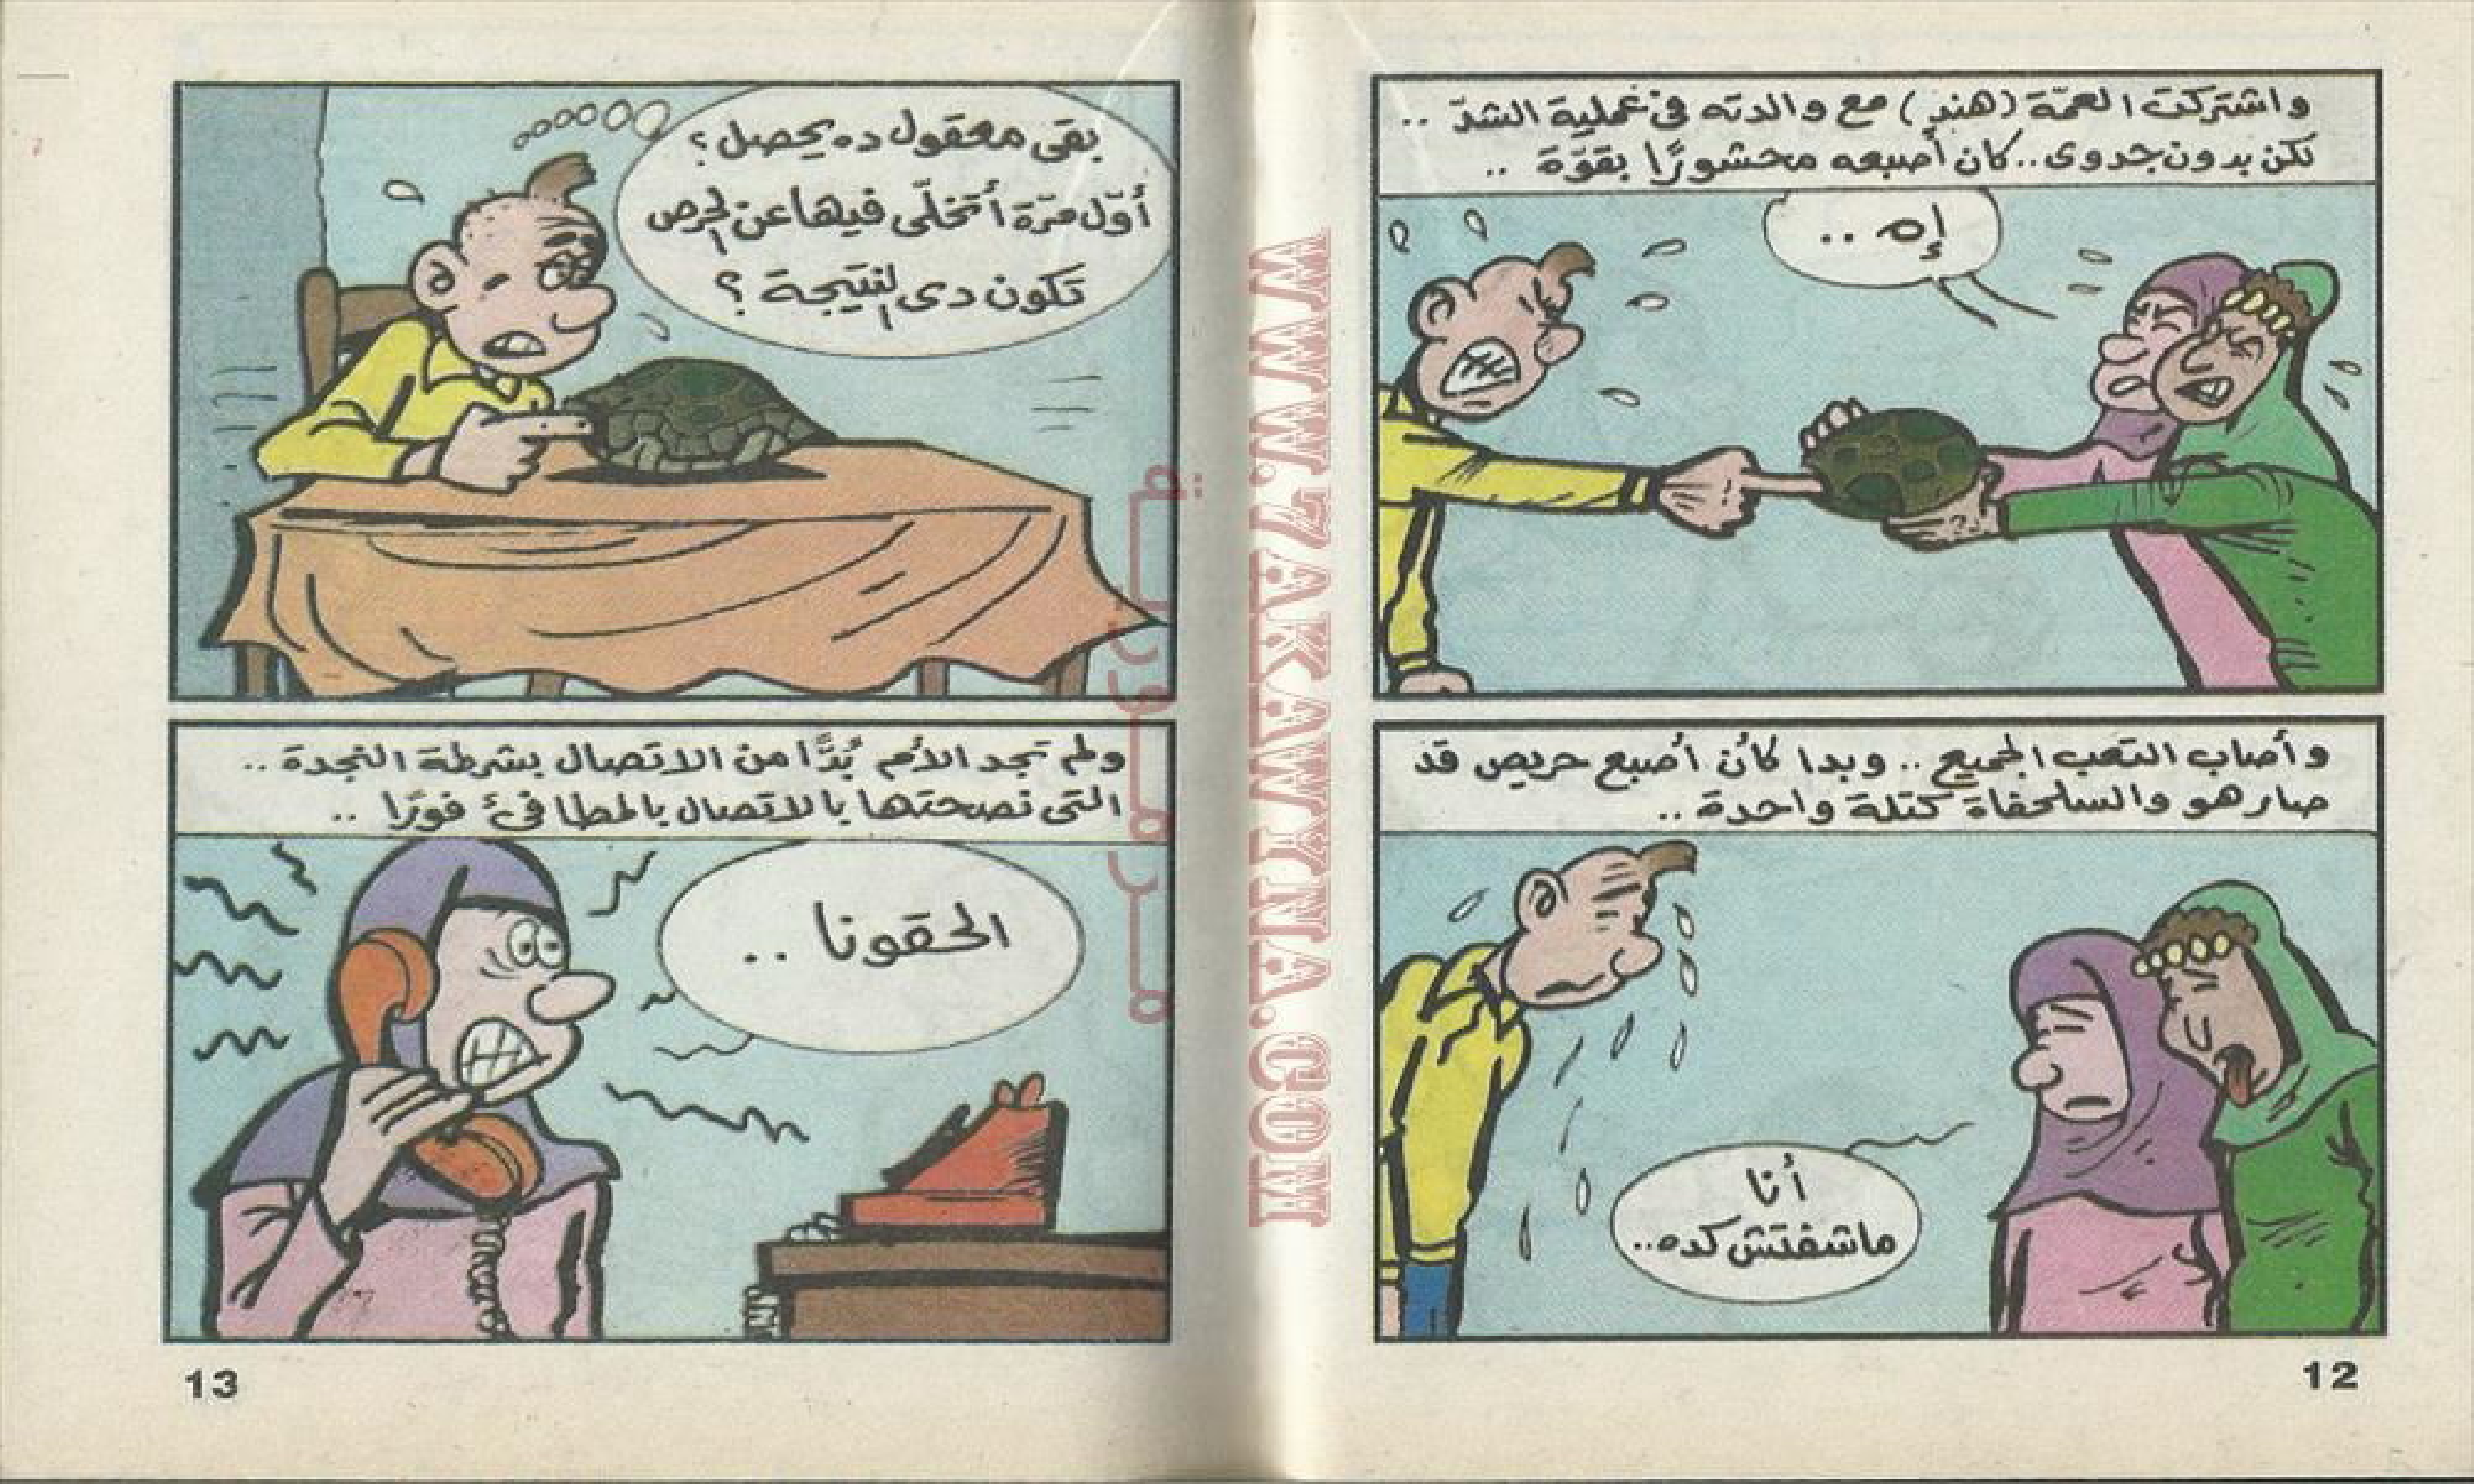 واشتركت العمّة (هند) مع والدته فى عملية الشدّ ..
لكن بدون جدوى.. كان أصبعه محشورًا بقوّة ..
إه ..
وأصاب التعب الجميع .. وبدا كأن أصبع حريص قد
صار هو والسلحفاة كتلة واحدة ..
أنا
ماشفتش كده..
12
بقى معقول ده يحصل ؟
أوّل مرّة أتخلّى فيها عن الحرص
تكون دى النتيجة ؟
ولم تجد الأم بُدًّا من الاتصال بشرطة النجدة ..
التى نصحتها بالاتصال بالمطافئ فورًا ..
الحقونا ..
13